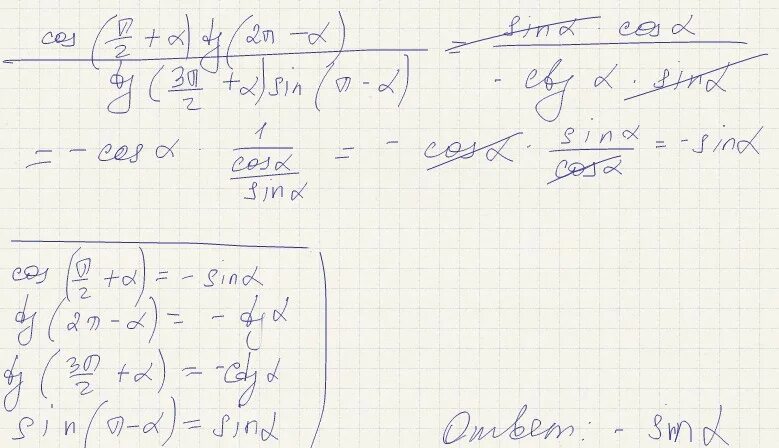 cos(π/2 + α) tg(2π − α) / tg(3π/2 + α) sin(π − α) = sinα · cosα / − ctg α · sinα
= − cos α · 1 / (cosα / sinα) = − cosα · sinα / cosα = − sinα
cos(π/2 + α) = − sinα
tg(2π − α) = − tg α
tg(3π/2 + α) = − ctgα
sin(π − α) = sinα
Ответ: − sin α